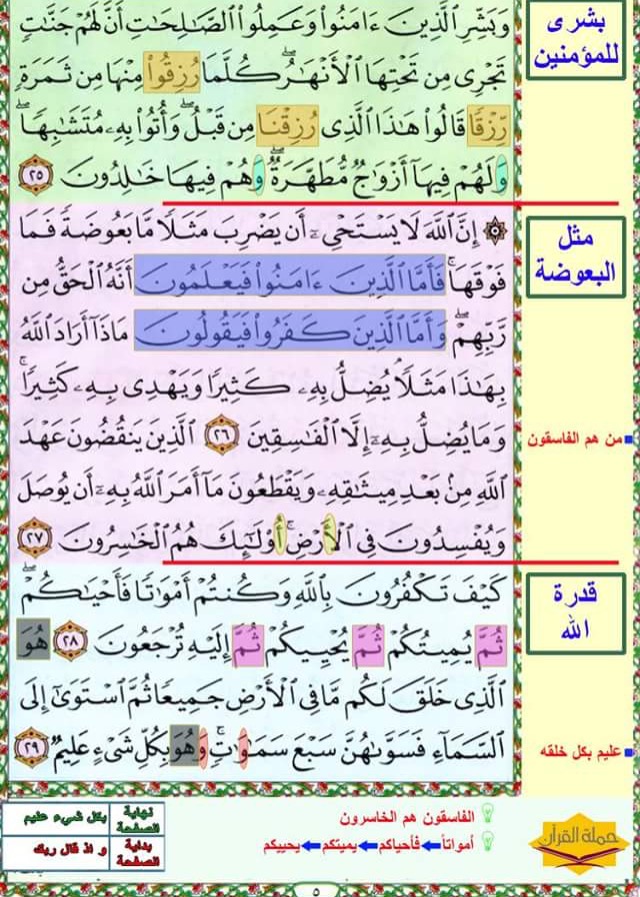 وَبَشِّرِ ٱلَّذِينَ ءَامَنُوا۟ وَعَمِلُوا۟ ٱلصَّـٰلِحَـٰتِ أَنَّ لَهُمْ جَنَّـٰتٍ
تَجْرِى مِن تَحْتِهَا ٱلْأَنْهَـٰرُ ۖ كُلَّمَا رُزِقُوا۟ مِنْهَا مِن ثَمَرَةٍ
رِّزْقًا قَالُوا۟ هَـٰذَا ٱلَّذِى رُزِقْنَا مِن قَبْلُ ۖ وَأُتُوا۟ بِهِۦ مُتَشَـٰبِهًا ۖ
وَلَهُمْ فِيهَآ أَزْوَٰجٌ مُّطَهَّرَةٌ ۖ وَهُمْ فِيهَا خَـٰلِدُونَ ٢٥
۞ إِنَّ ٱللَّهَ لَا يَسْتَحْىِۦٓ أَن يَضْرِبَ مَثَلًا مَّا بَعُوضَةً فَمَا
فَوْقَهَا ۚ فَأَمَّا ٱلَّذِينَ ءَامَنُوا۟ فَيَعْلَمُونَ أَنَّهُ ٱلْحَقُّ مِن
رَّبِّهِمْ ۖ وَأَمَّا ٱلَّذِينَ كَفَرُوا۟ فَيَقُولُونَ مَاذَآ أَرَادَ ٱللَّهُ
بِهَـٰذَا مَثَلًا ۘ يُضِلُّ بِهِۦ كَثِيرًا وَيَهْدِى بِهِۦ كَثِيرًا ۚ
وَمَا يُضِلُّ بِهِۦٓ إِلَّا ٱلْفَـٰسِقِينَ ٢٦ ٱلَّذِينَ يَنقُضُونَ عَهْدَ
ٱللَّهِ مِنۢ بَعْدِ مِيثَـٰقِهِۦ وَيَقْطَعُونَ مَآ أَمَرَ ٱللَّهُ بِهِۦٓ أَن يُوصَلَ
وَيُفْسِدُونَ فِى ٱلْأَرْضِ ۚ أُو۟لَـٰٓئِكَ هُمُ ٱلْخَـٰسِرُونَ ٢٧
كَيْفَ تَكْفُرُونَ بِٱللَّهِ وَكُنتُمْ أَمْوَٰتًا فَأَحْيَـٰكُمْ ۖ
ثُمَّ يُمِيتُكُمْ ثُمَّ يُحْيِيكُمْ ثُمَّ إِلَيْهِ تُرْجَعُونَ ٢٨ هُوَ
ٱلَّذِى خَلَقَ لَكُم مَّا فِى ٱلْأَرْضِ جَمِيعًا ثُمَّ ٱسْتَوَىٰٓ إِلَى
ٱلسَّمَآءِ فَسَوَّىٰهُنَّ سَبْعَ سَمَـٰوَٰتٍ ۚ وَهُوَ بِكُلِّ شَىْءٍ عَلِيمٌ ٢٩
بشرى
للمؤمنين
مثل
البعوضة
من هم الفاسقون
قدرة
الله
عليم بكل خلقه
الفاسقون هم الخاسرون
أمواتاً فأحياكم يميتكم يحييكم
حملة القرآن
نهاية الصفحة بكل شيء عليم
بداية الصفحة و اذ قال ربك
٥